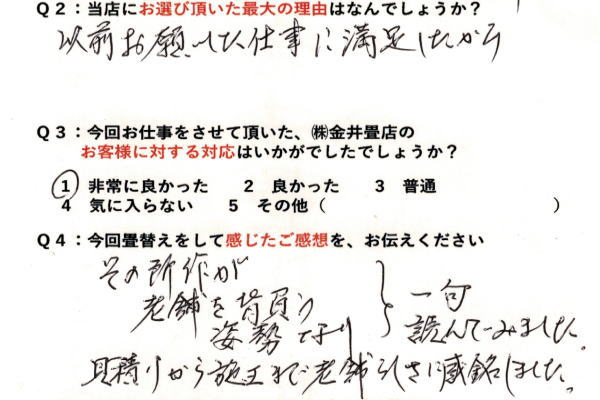 Q2：当店にお選び頂いた最大の理由はなんでしょうか？
以前お願いした仕事に満足したから
Q3：今回お仕事をさせて頂いた、㈱金井畳店の
お客様に対する対応はいかがでしたでしょうか？
1 非常に良かった 2 良かった 3 普通
4 気に入らない 5 その他（ ）
Q4：今回畳替えをして感じたご感想を、お伝えください
その所作が
老舗を背負う
姿勢なり
一句
読んでみました。
見積りから施工まで老舗 に感銘しました。